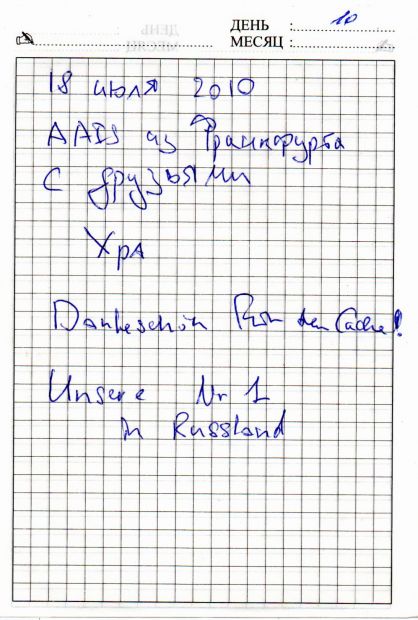 ДЕНЬ : 10
МЕСЯЦ :
18 июля 2010
из Франкфурта
с друзьями
Dankeschön für den Cache!
Unsere Nr 1
in Russland